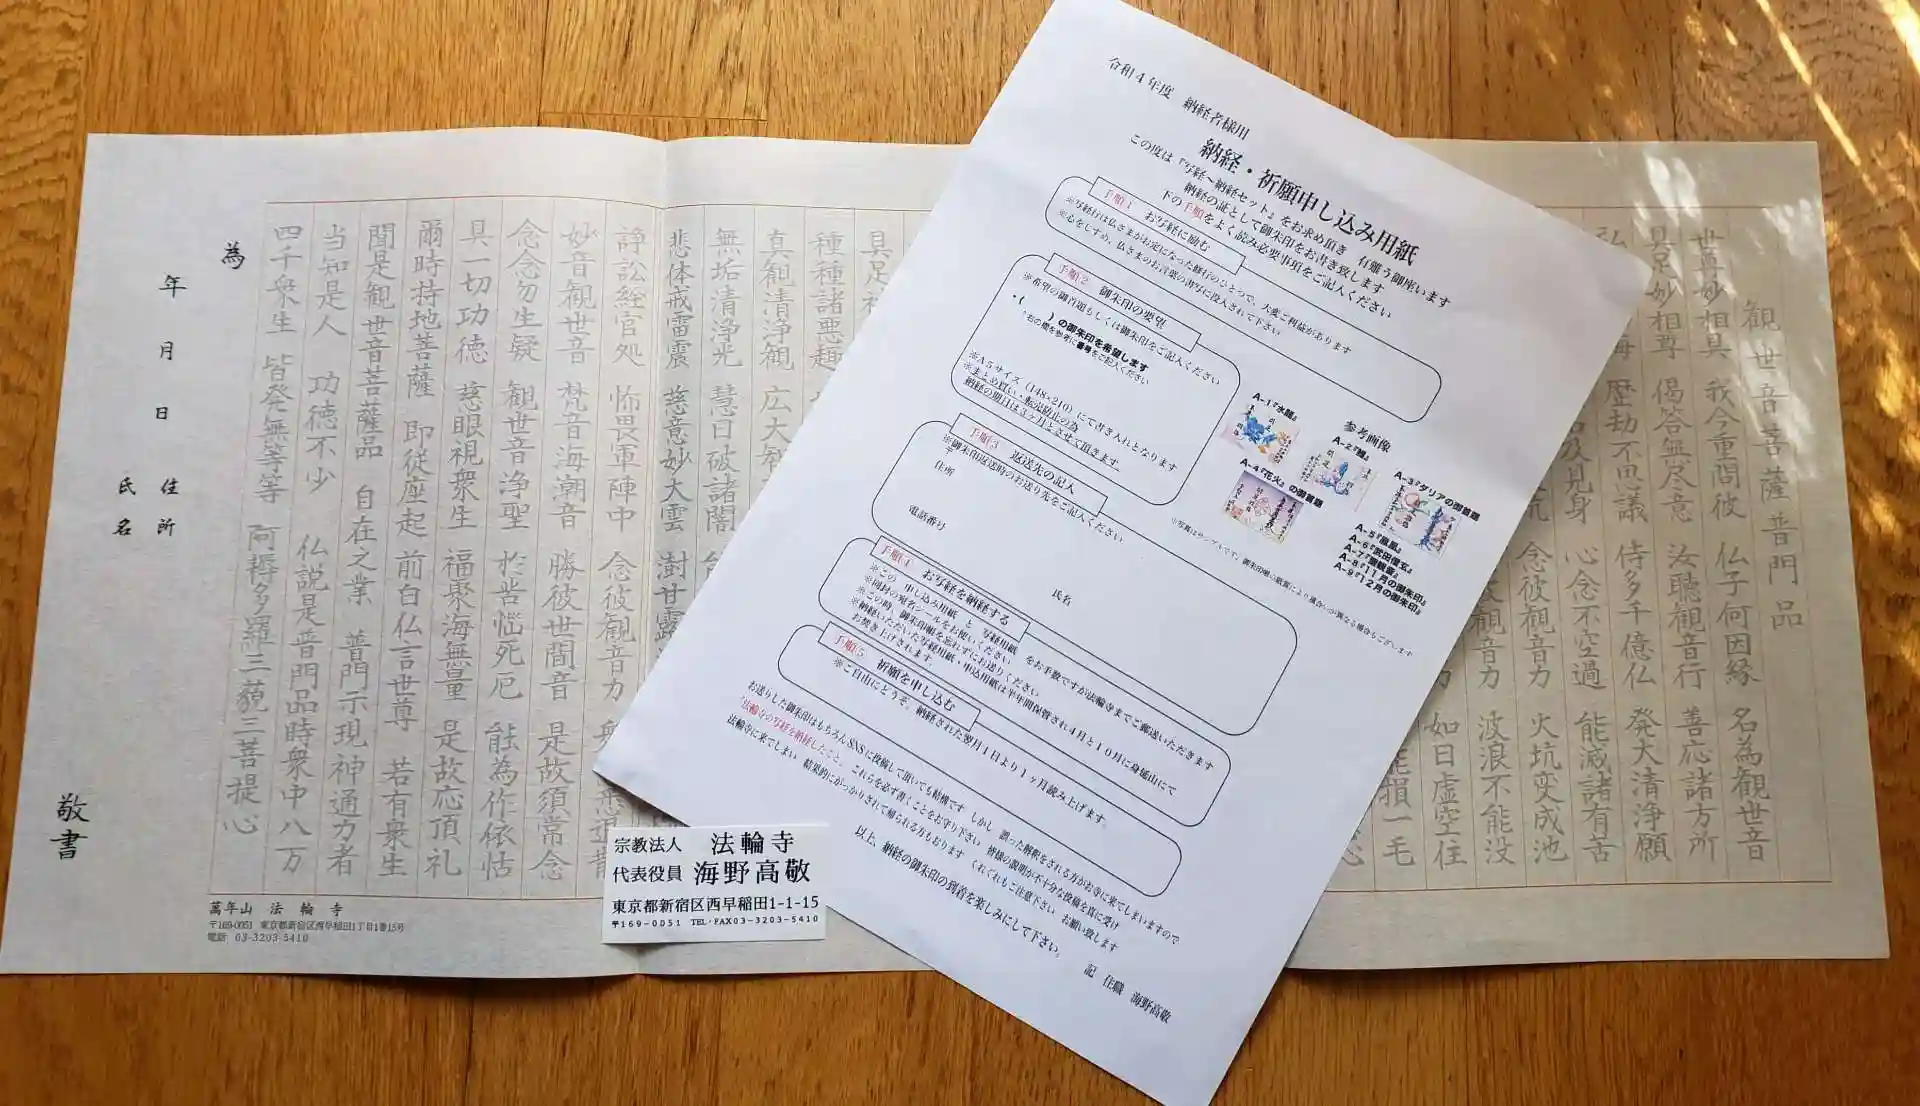 令和4年度　納経者様用
納経・祈願申し込み用紙
この度は『写経～納経セット』をお求め頂き　有難う御座います
納経の証として御朱印をお書き致します
下の手順をよく読み必要事項をご記入ください
手順1　お写経に励む
※写経行は仏さまがお定になった修行のひとつで、大変ご利益があります
※心をしずめ、仏さまのお言葉の書写に没入されて下さい
手順2　御朱印の要望
※希望の御首題もしくは御朱印をご記入ください
・(　　　)の御朱印を希望します
↑右の欄を参考に番号をご記入ください
※A5サイズ（148×210）にて書き入れとなります
※まとめ買い・転売防止の為
納経の期日は3ヶ月とさせて頂きます
参考画像
A-1『水龍』
A-3『ダリアの御首題
A-4『花火』の御首題
A-5『鳳凰』
A-6『武田信玄』
A-8『11月の御朱印』
A-9『12月の御朱印』
手順3　返送先の記入
※御朱印返送時のお送り先をご記入ください
〒
住所
電話番号
氏名
手順4　お写経を納経する
※この　申し込み用紙　と　写経用紙　をお手数ですが法輪寺までご郵送いただきます
※同封の宛名シールをお使いください
※この時、御朱印帳を忘れずにお送りください
※納経いただいた写経用紙・申込用紙は半年間保管され4月と10月に身延山にて
お焚き上げされます
手順5　祈願を申し込む
※ご自由にどうぞ。納経された翌月1日より1ヶ月読み上げます。
お送りした御朱印はもちろんSNSに投稿して頂いても結構です　しかし　誤った解釈をされる方がお寺に来てしまいますので
『法輪寺の写経を納経したこと。これらを必ず書くことをお守り下さい　皆様の説明が不十分な投稿を真に受け
法輪寺に来てしまい　結果的にがっかりされて帰られる方もおります　くれぐれもご注意下さい　お願い致します
以上、納経の御朱印の到着を楽しみにして下さい。
記　住職　海野高敬
観世音菩薩普門品
世尊妙相具　我今重問彼　仏子何因縁　名為観世音
具足妙相尊　偈答無尽意　汝聴観音行　善応諸方所
弘　海　歴劫不思議　侍多千億仏　発大清浄願
名及見身　心念不空過　能滅諸有苦
念彼観音力　火坑変成池
観音力　波浪不能没
如日虚空住
能損一毛
具足神
種種諸悪趣
真観清浄観　広大智
無垢清浄光　慧日破諸闇
悲体戒雷震　慈意妙大雲　澍甘露
諍訟経官処　怖畏軍陣中　念彼観音力
妙音観世音　梵音海潮音　勝彼世間音　是故須常念
念念勿生疑　観世音浄聖　於苦悩死厄　能為作依怙
具一切功徳　慈眼視衆生　福聚海無量　是故応頂礼
爾時持地菩薩　即従座起　前白仏言世尊　若有衆生
聞是観世音菩薩品　自在之業　普門示現神通力者
当知是人　功徳不少　仏説是普門品時衆中八万
四千衆生　皆発無等等　阿耨多羅三藐三菩提心
為
年　月　日
住所
氏名
敬書
萬年山　法輪寺
〒169-0051　東京都新宿区西早稲田1丁目1番15号
電話　03-3203-5410
宗教法人　法輪寺
代表役員　海野高敬
東京都新宿区西早稲田1-1-15
〒169-0051　TEL・FAX03-3203-5410